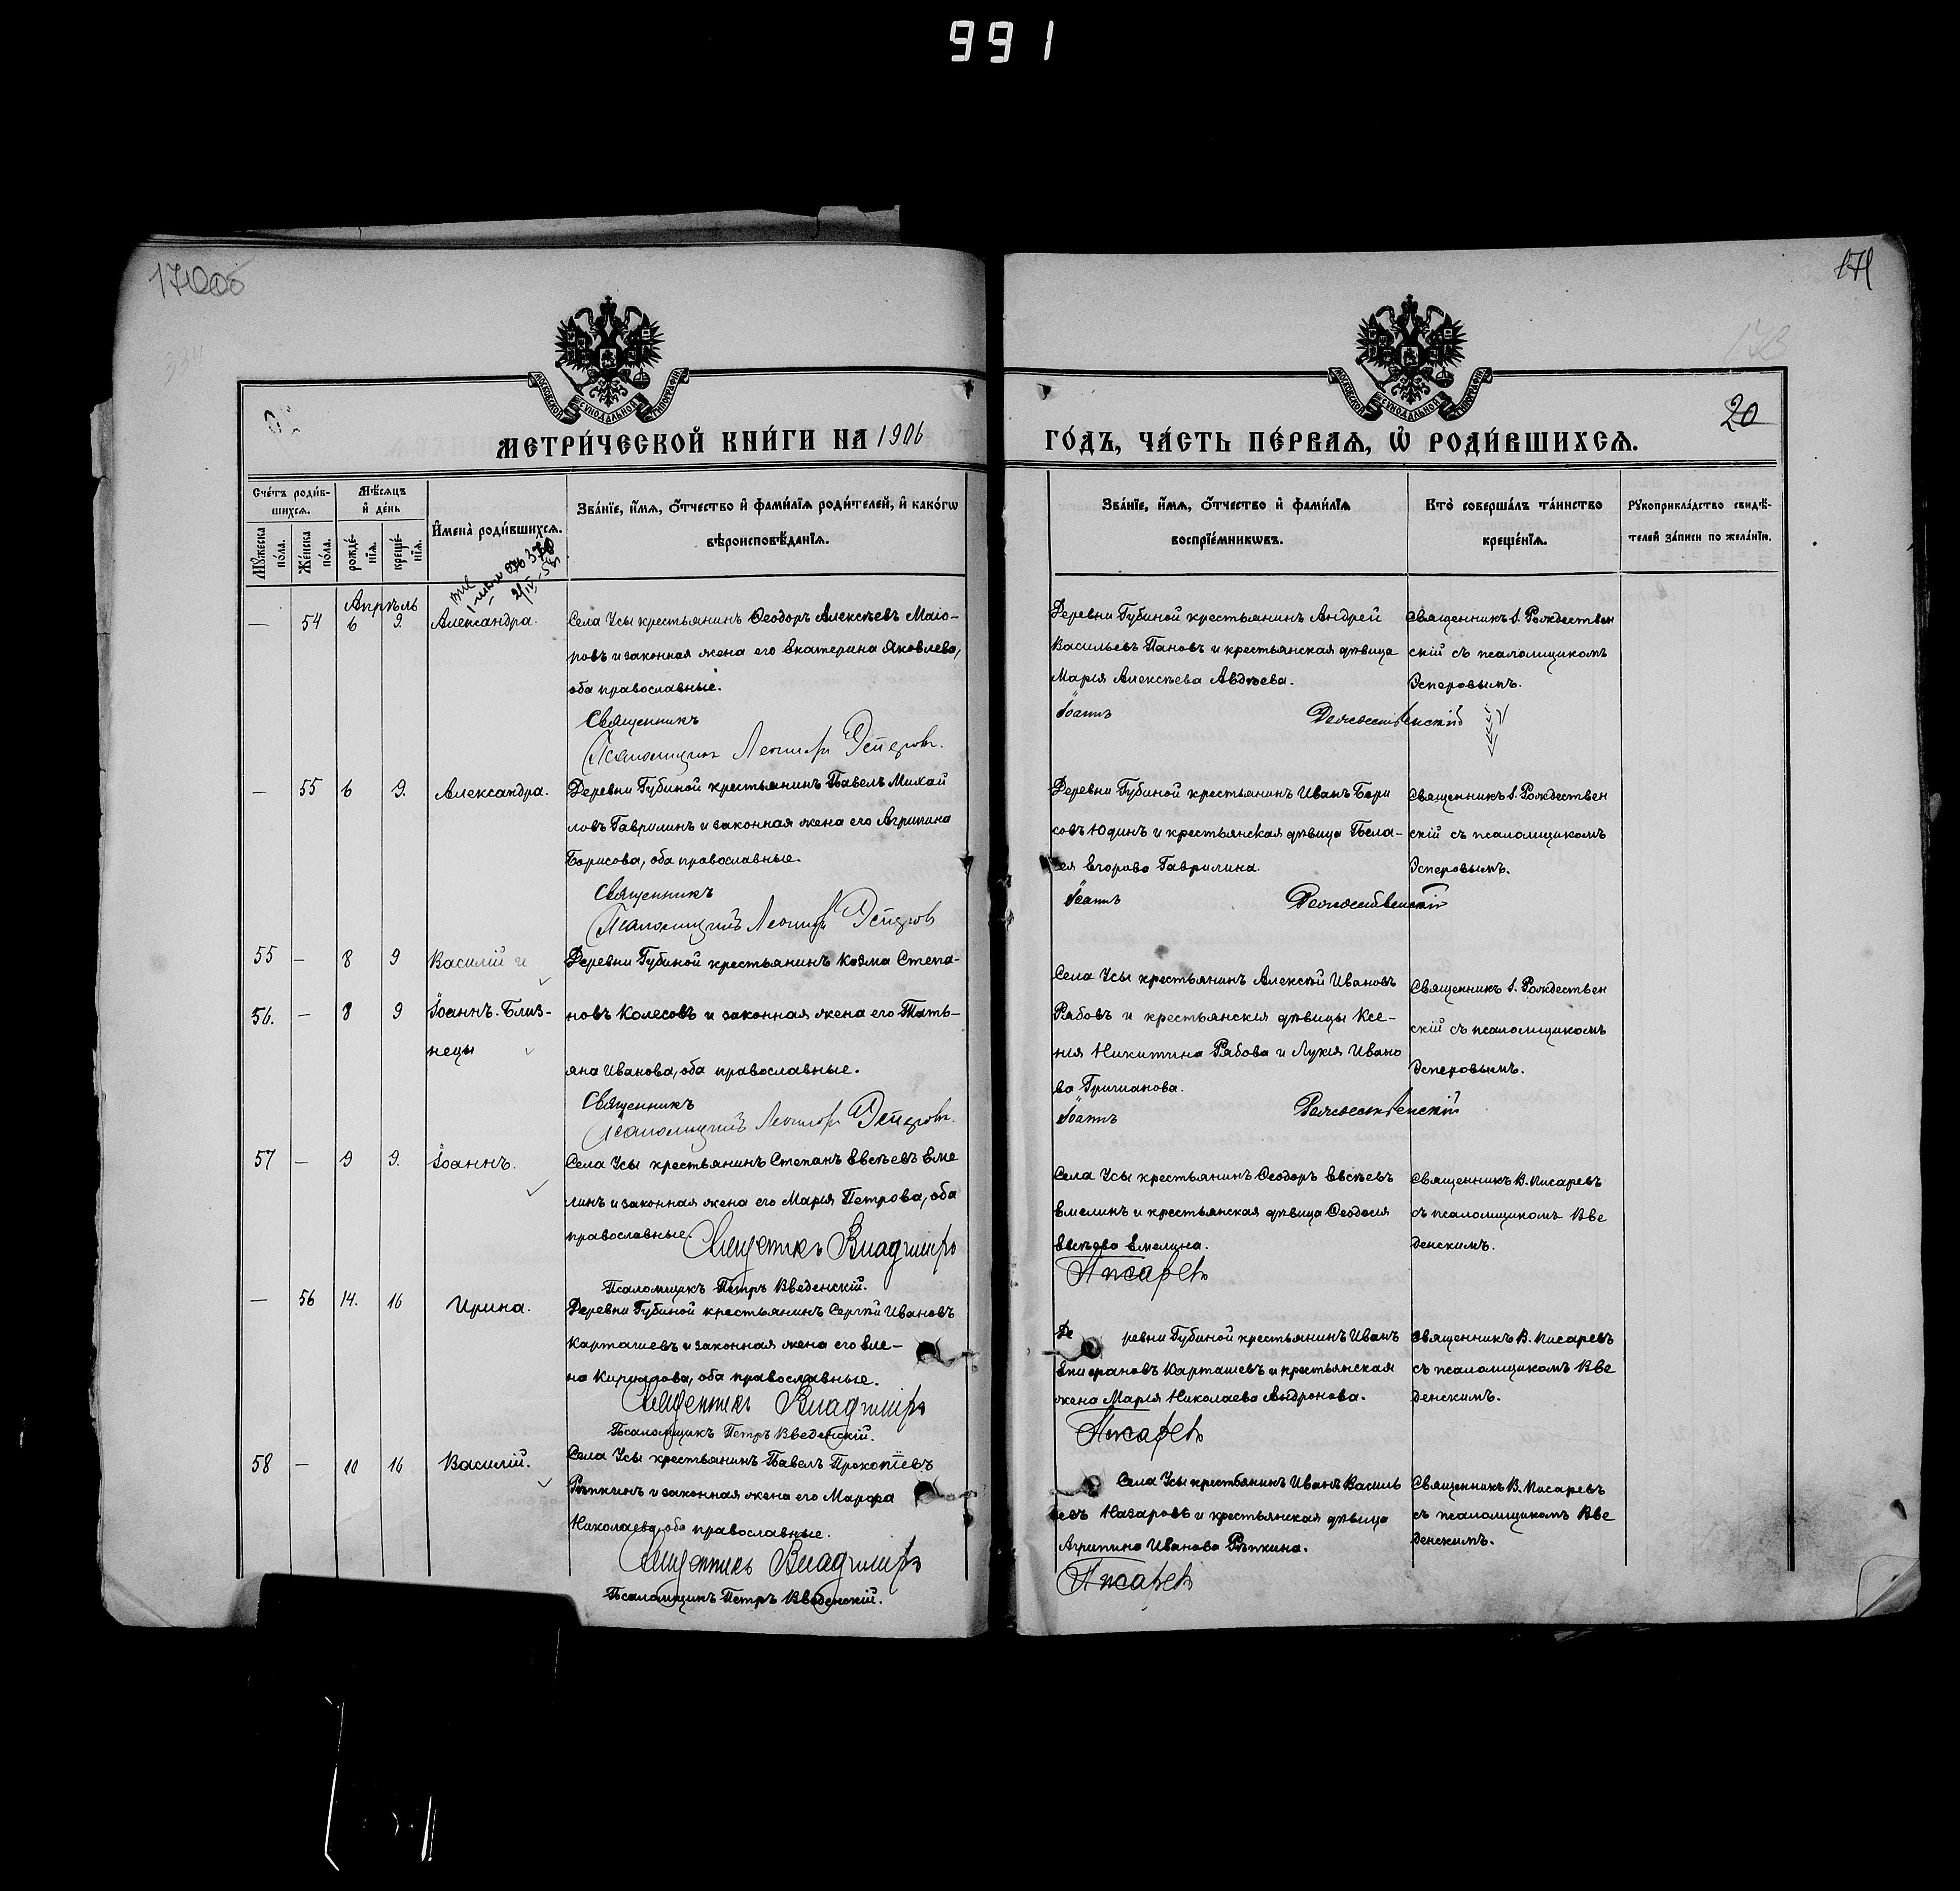 991
171
20
МОСКОВСКОЙ СѴНОДАЛЬНОЙ ТИПОГРАФІИ
МОСКОВСКОЙ СѴНОДАЛЬНОЙ ТИПОГРАФІИ
МЕТРИ́ЧЕСКОЙ КНИ́ГИ НА 1906
ГО́ДЪ, ЧА́СТЬ ПЕ́РВАѦ, Ѽ РОДИ́ВШИХСѦ.
Сче́тъ роди́в-
шихсѧ.
Мꙋ́жеска
по́ла.
Же́нска
по́ла.
Мѣ́сѧцъ
и҆ де́нь
рожде́-
нїѧ.
креще́-
нїѧ.
И҆мена̀ роди́вшихсѧ.
Зва́нїе, и҆́мѧ, ѻ҆́тчество и҆ фами́лїѧ роди́телей, и҆ како́гѡ
вѣроисповѣ́данїѧ.
Зва́нїе, и҆́мѧ, ѻ҆́тчество и҆ фами́лїѧ
воспрїе́мникѡвъ.
Кто̀ соверша́лъ та́инство
креще́нїѧ.
Рꙋкоприкла́дство свидѣ́-
телей за́писи по жела́нїю.
Апрѣль
— 54 6 9. Александра.
Села Усы крестьянинъ Ѳеодоръ Алексѣевъ Маіо-
ровъ и законная жена его Екатерина Яковлева,
оба православные.
Священникъ
Псаломщикъ Леонидъ Эсперовъ.
Деревни Губиной крестьянинъ Андрей
Васильевъ Пановъ и крестьянская дѣвица
Марія Алексѣева Авдѣева.
Іоаннъ Рождественскій
Священникъ І. Рождествен
скій съ псаломщикомъ
Эсперовымъ.
— 55 6 9. Александра.
Деревни Губиной крестьянинъ Павелъ Михай
ловъ Гаврилинъ и законная жена его Агрипина
Борисова, оба православные.
Священникъ
Псаломщикъ Леонидъ Эсперовъ
Деревни Губиной крестьянинъ Иванъ Бори
совъ Юдинъ и крестьянская дѣвица
Егорова Гаврилина.
Іоаннъ Рождественскій
Священникъ І. Рождествен
скій съ псаломщикомъ
Эсперовымъ.
55 — 8 9 Василій и
56. — 8 9 Іоаннъ. Близ-
нецы
Деревни Губиной крестьянинъ Козма Степа-
новъ Колесовъ и законная жена его Тать-
яна Иванова, оба православные.
Священникъ
Псаломщикъ Леонидъ Эсперовъ.
Села Усы крестьянинъ Алексѣй Ивановъ
Рябовъ и крестьянскія дѣвицы Ксе-
нія Никитина Рябова и Лукія Ивано
ва Гришанова.
Іоаннъ Рождественскій
Священникъ І. Рождествен
скій съ псаломщикомъ
Эсперовымъ.
57 — 9 9. Іоаннъ.
Села Усы крестьянинъ Степанъ Евсѣевъ Еме
линъ и законная жена его Марія Петрова, оба
православные. Священникъ Владиміръ
Псаломщикъ Петръ Введенскій.
Села Усы крестьянинъ Ѳеодоръ Евсѣевъ
Емелинъ и крестьянская дѣвица Ѳеодосія
Евсѣева Емелина.
Писаревъ
Священникъ В. Писаревъ
съ псаломщикомъ Вве
денскимъ.
— 56 14. 16 Ирина.
Деревни Губиной крестьянинъ Сергѣй Ивановъ
Карташевъ и законная жена его Еле-
на Кириллова, оба православные.
Священникъ Владиміръ
Псаломщикъ Петръ Введенскій.
Деревни Губиной крестьянинъ Иванъ
Епифановъ Карташевъ и крестьянская
жена Марія Николаева Андронова.
Писаревъ
Священникъ В. Писаревъ
съ псаломщикомъ Вве
денскимъ.
58 — 10 16 Василій.
Села Усы крестьянинъ Павелъ Прокопіевъ
Рѣпкинъ и законная жена его Марфа
Николаева, оба православные.
Священникъ Владиміръ
Псаломщикъ Петръ Введенскій.
Села Усы крестьянинъ Иванъ Василь
евъ Назаровъ и крестьянская дѣвица
Агрипина Иванова Рѣпкина.
Писаревъ
Священникъ В. Писаревъ
съ псаломщикомъ Вве
денскимъ.